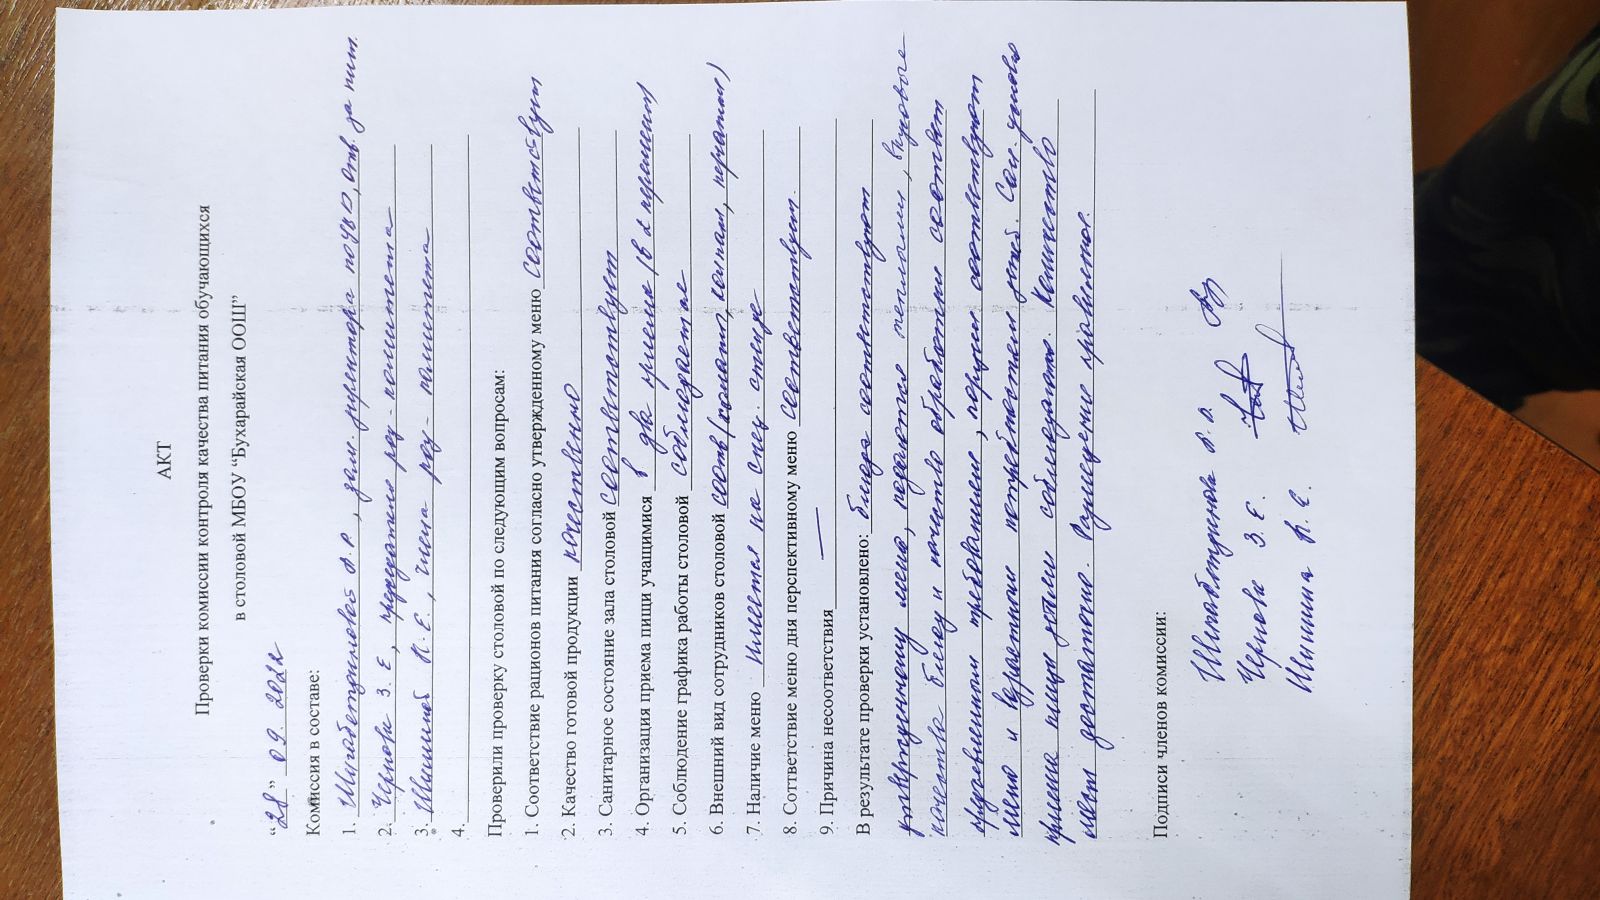 АКТ
Проверки комиссии контроля качества питания обучающихся
в столовой МБОУ “Бухарайская ООШ”
“28” 09. 2022
Комиссия в составе:
1. Шигабетдиновой В.Р., зам. директора по УВР, отв. за пит.
2. Чернова З. Е., председателя род-комитета
3. Шишиной К. Е., члена род-комитета
4.
Проверили проверку столовой по следующим вопросам:
1. Соответствие рационов питания согласно утвержденному меню соответствует
2. Качество готовой продукции качественно
3. Санитарное состояние зала столовой соответствует
4. Организация приема пищи учащимися в два приема (в 2 перемены)
5. Соблюдение графика работы столовой соблюдается
6. Внешний вид сотрудников столовой соотв (халат, колпак, перчатки)
7. Наличие меню Имеется на спец. стенде
8. Сответствие меню дня перспективному меню соответствует.
9. Причина несоответствия —
В результате проверки установлено: блюда соответствуют
утвержденному меню, подаются теплыми, вкусовые
качества блюд и качество обработки соответ
предъявленным требованиям, порции соответствуют
меню и возрастным потребностям детей. Сан. условия
приема пищи детьми соблюдаются. Количество
мест достаточно. Размещение правильное.
Подписи членов комиссии:
Шигабетдинова В. Р.
Чернова З. Е.
Шишина К. Е.